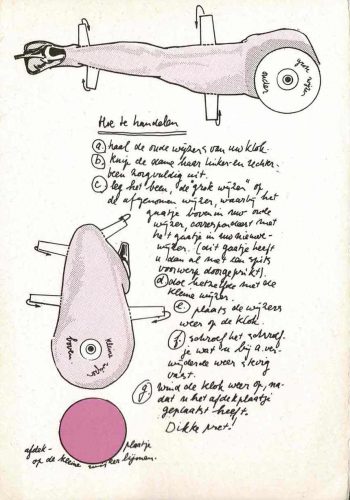 grote wijzer
onder
Hoe te handelen
a. haal de oude wijzers van uw klok.
b. knip de dame haar linker- en rechter-
been zorgvuldig uit.
c. leg het been, de "grote wijzer" op
de afgenomen wijzer, waarbij het
gaatje boven in uw oude
wijzer, correspondeert met
het gaatje in uw nieuwe
wijzer. (dit gaatje heeft
u dan al met een spits
voorwerp doorgeprikt).
d. doe hetzelfde met de
kleine wijzer.
e. plaats de wijzers
weer op de klok.
f. schroef het schroef-
je wat u bij a. ver-
wijderde weer stevig
vast.
g. wind de klok weer op, na-
dat u het afdekplaatje
geplaatst heeft.
Dikke pret!
kleine wijzer
boven
afdek- plaatje
op de kleine wijzer lijmen.